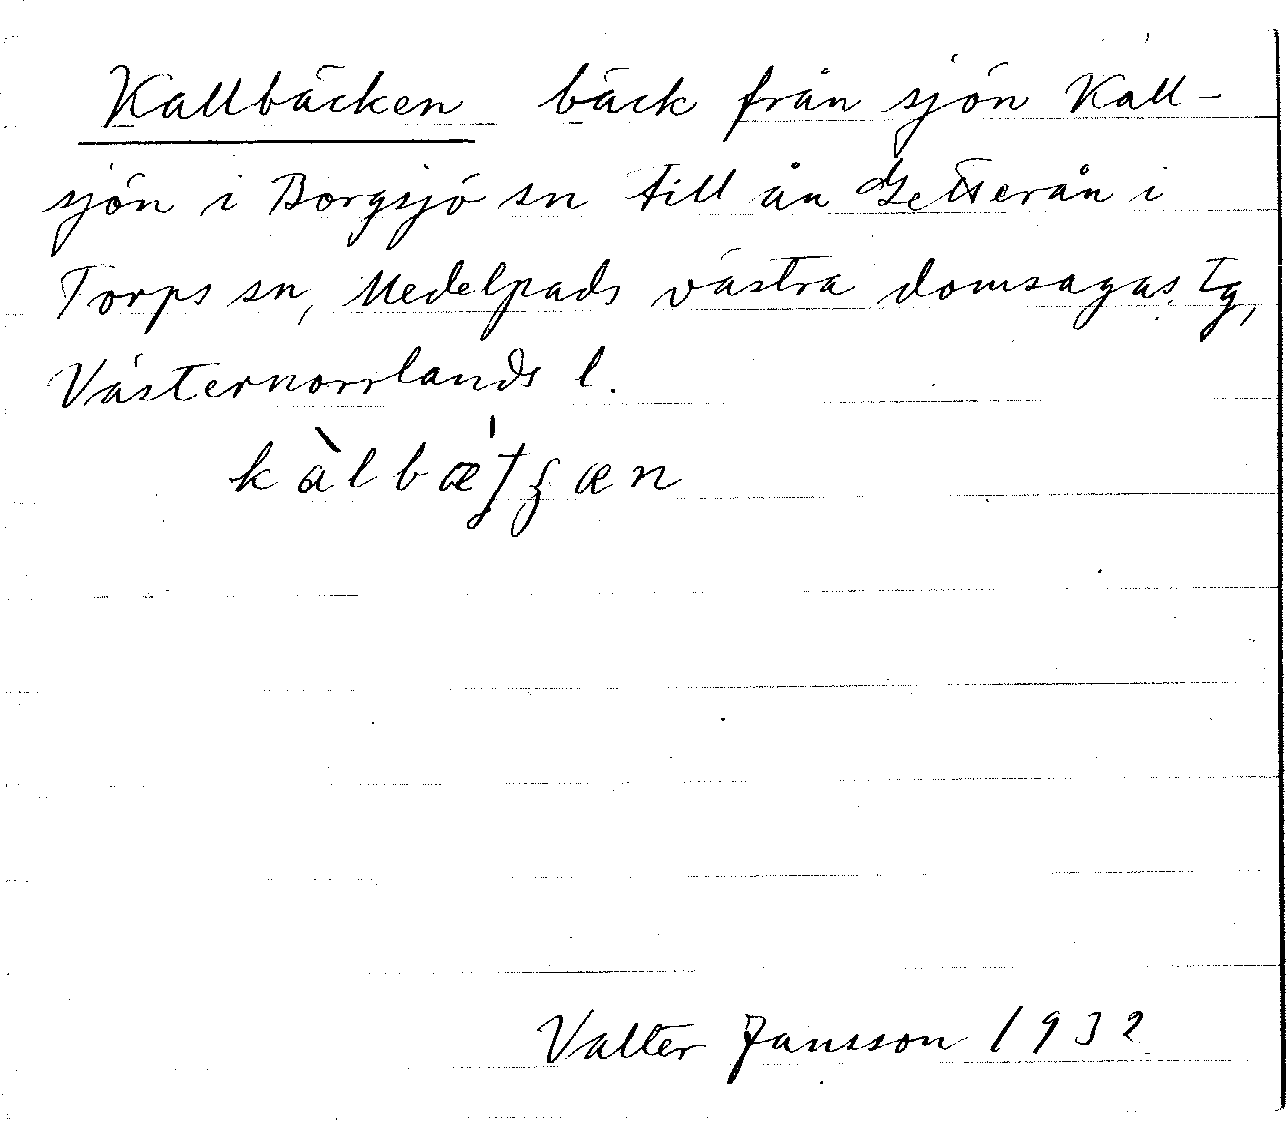 Kallbäcken bäck från sjön Kall-
sjön i Borgsjö sn till ån Getterån i
Torps sn, Medelpads västra domsagas tg,
Västernorrlands l.
kàlbæ'tʒæn
Valter Jansson 1932